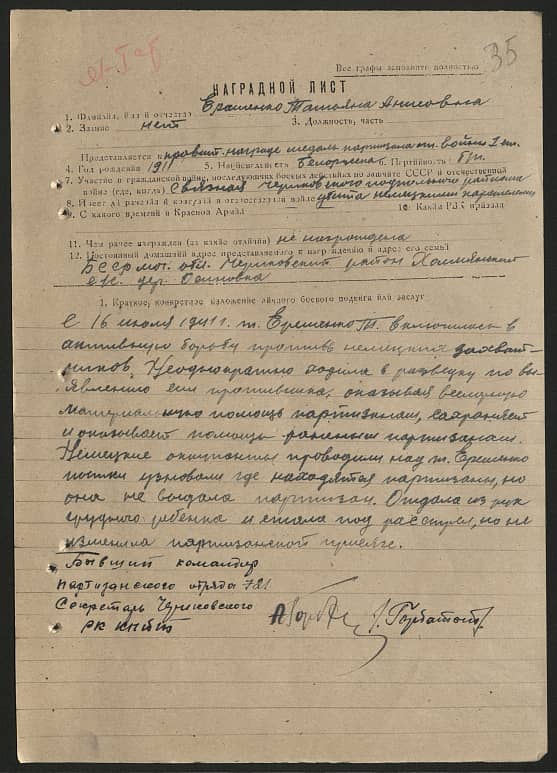 35
Все графы заполнять полностью
НАГРАДНОЙ ЛИСТ
1. Фамилия, имя и отчество Ерашенко Татьяна
2. Звание нет 3. Должность, часть
Представляется к правит. награде медаль партизана от. войны 2 ст.
4. Год рождения 1911 5. Национальность Белоруска 6. Партийность б/п.
7. Участие в гражданской войне, последующих боевых действиях по защите СССР и отечественной
войне (где, когда) Связная Чериковского подпольного райкома
8. Имеет ли ранения и контузии в отечественной войне убита немецкими карателями
9. С какого времени в Красной Армии 10. Каким РВК призван
11. Чем ранее награжден (за какие отличия) не награждена
12. Постоянный домашний адрес представляемого к награждению и адрес его семьи
БССР мог. обл. Чериковский район
с/с. дер.
1. Краткое, конкретное изложение личного боевого подвига или заслуг
С 16 июля 1941 г. т. Ерашенко Т. включилась в
активную борьбу против немецких захват-
чиков. Неоднократно ходила в разведку по вы-
явлению сил противника, оказывая всемерную
материальную помощь партизанам, сохраняет
и оказывает помощь раненым партизанам.
Немецкие оккупанты проводили над т. Ерашенко
пытки узнавали где находятся партизаны, но
она не выдала партизан. Отдала из рук
грудного ребенка и стала под расстрел, но не
изменила партизанской присяге.
Бывший командир
партизанского отряда 721
Секретарь Чериковского
РК КП(б)Б
/. Горбатов/.